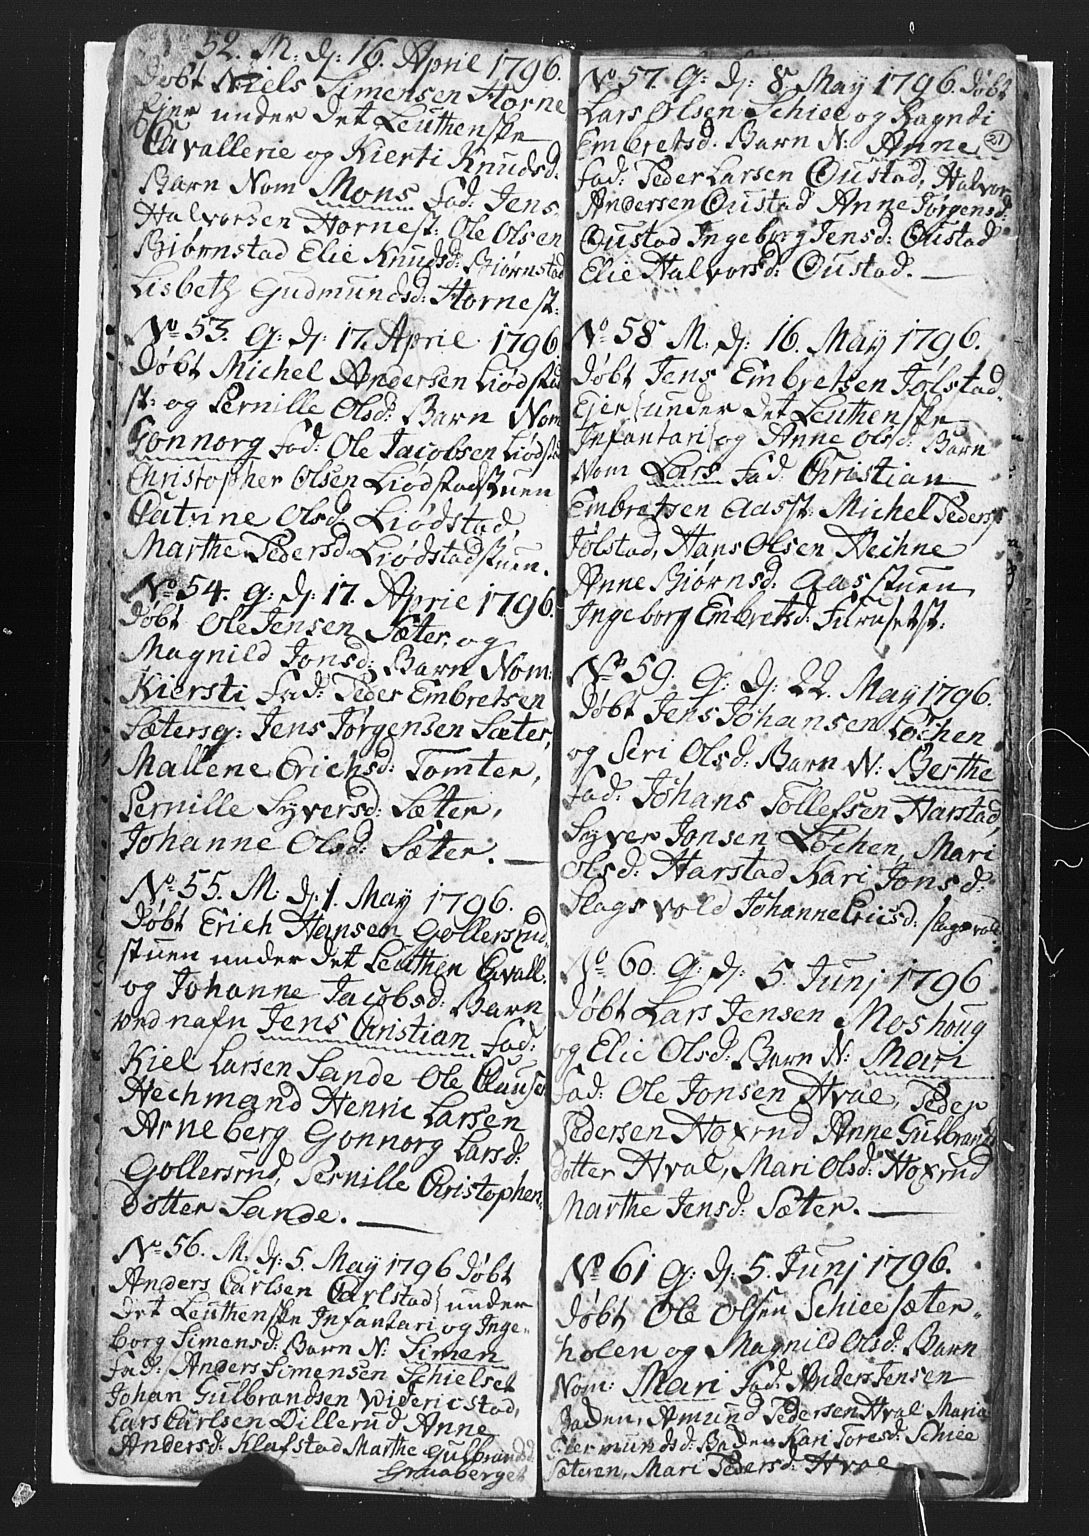 52. M: dj: 16. April 1796.
Døbt Niels Simensen Horne
Ejer under det Leuthenske
Cavallerie og Kierti Knudsd:
Barn Nom Mons Fad: Jens
Halvorsen Hornest: Ole Olsen
Biørnstad Elie Knudsd: Biørnstad
Lisbeth Gudmundsd: Hornest:
No 53. G: dj: 17. April 1796
Døbt Michel Andersen Liødstad
st: og Pernille Olsd: Barn Nom
Gonnorg Fad: Ole Jacobsen Liødst
Christopher Olsen Liødstadstuen
Catrine Olsd: Liødstad,
Marthe Pedersd: Liødstadstuen.
No 54. G: dj: 17. April 1796.
Døbt Ole Jensen Sæter, og
Magnild Jonsd: Barn Nom:
Kiersti Fad: Peder Embretsen
Sætersg: Jens Jørgensen Sæter,
Mallene Erichsd: Tomter,
Pernille Syversd: Sæter,
Johanne Olsd: Sæter. —
No 55. M: dj: 1. May 1796.
Døbt Erich Hansen Gollersrud-
stuen under det Leuthen Cavall.
og Johanne Jacobsd: Barn
ved nafn Jens Christian Fad:
Kiel Larsen Sande Ole Clausen
Hechmand Henric Larsen
Arneberg Gonnorg Larsd:
Gollersrud, Pernille Christophen
dotter Sande. —
No 56. M. dj: 5. May 1796 døbt
Anders Carlsen Carlstad under
det Leuthenske Infantari og Inge-
borg Simensd: Barn N: Simen
Fad: Anders Simensen Schielset
Johan Gulbrandsen Widericstad,
Lars Carlsen Dillerud Anne
Andersd: Klafstad Marthe Gulbrandsd:
Graaberget
No 57. G: dj: 8. May 1796. døbt
Lars Olsen Schiee og Ragndi
Embretsd: Barn N: Anne 21
Fad: Peder Larsen Oustad, Halvor
Andersen Oustad Anne Jørgensd:
Oustad Ingeborg Jensd: Oustad
Elie Halvorsd: Oustad. —
No 58 M. dj: 16. May 1796.
Døbt Jens Embretsen Jølstad
Ejer under det Leuthenske
Infantari og Anne Olsd: Barn
Nom Lars Fad: Christian
Embretsen Aasst: Michel Peders
Jølstad, Hans Olsen Hechne
Anne Biørnsd: Aasstuen
Ingeborg Embretsd: Furusetst:
No 59. G: dj: 22. May 1796.
Døbt Jens Johansen Løchen
og Seri Olsd: Barn N: Berthe
Fad: Johans Tollefsen Harstad,
Syver Jonsen Løchen, Mari
Olsd: Harstad Kari Jonsd:
Slagsvold Johanne Eriisd: slagsvold
No 60. G: dj: 5. Junj 1796
Døbt Lars Jensen Moshoug
og Elie Olsd: Barn N: Mari
Fad: Ole Jonsen Hval, Peder
Pedersen Hoxrud Anne Gulbrands
dotter Hval, Mari Olsd: Hoxrud
Marthe Jensd: Sæter. —
No 61 G: dj: 5. Junj 1796.
Døbt Ole Olsen Schiee sæter-
holen og Magnild Olsd: Barn
Nom: Mari Fad: Anders Jensen
Baden, Amund Pedersen Hval Maria
Giermundsd: Baden Kari Toresd: Schiee
Sæteren, Mari Pedersd: Hval —